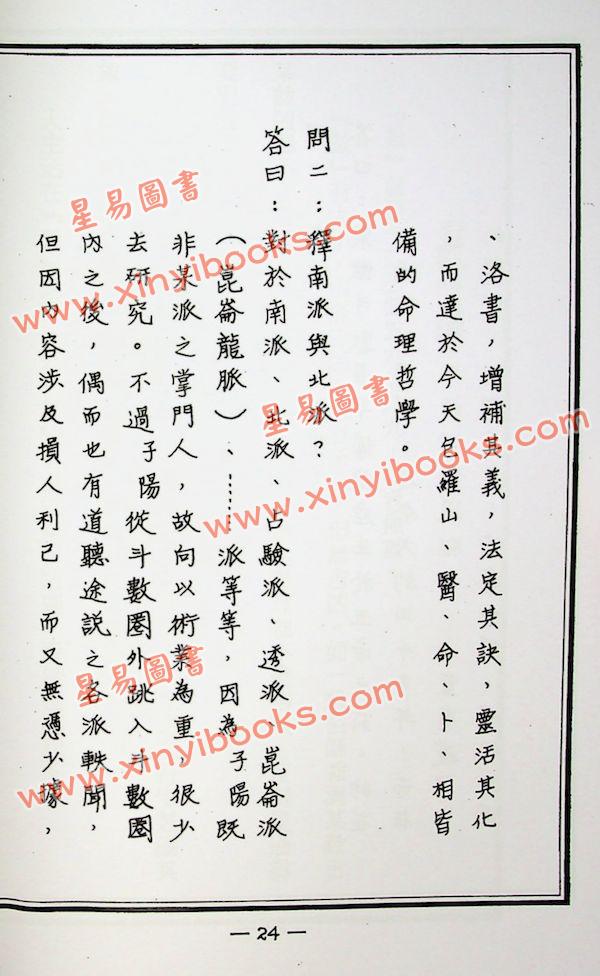 、洛書，增補其義，法定其訣，靈活其化
，而達於今天包羅山、醫、命、卜、相皆
備的命理哲學。
問二：釋南派與北派？
答曰：對於南派、北派、占驗派、透派、崑崙派
（崑崙龍脈）、……派等等，因為子陽既
非某派之掌門人，故向以術業為重，很少
去研究。不過子陽從斗數圈外跳入斗數圈
內之後，偶而也有道聽途說之各派軼聞，
但因內容涉及損人利己，而又無憑少據，
— 24 —
星易圖書
www.xinyibooks.com
星易圖書
www.xinyibooks.com
星易圖書
www.xinyibooks.com